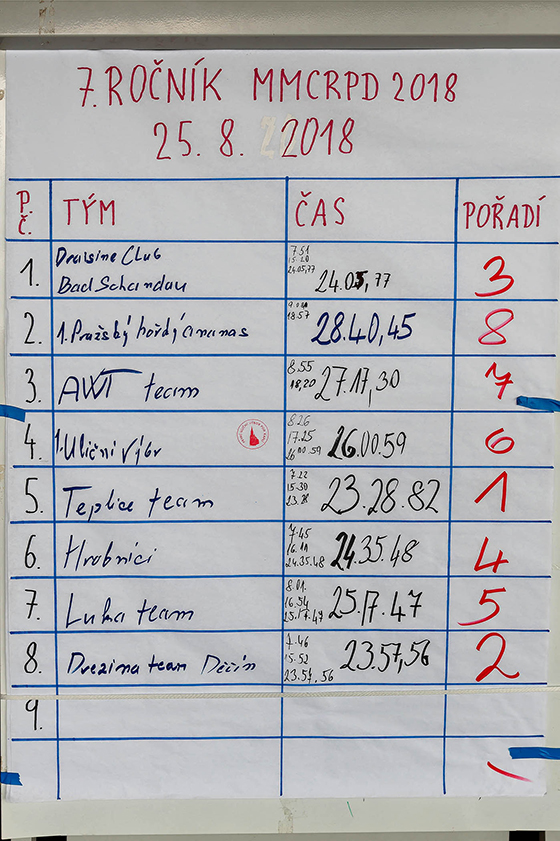 7. ROČNÍK MMCRPD 2018
25. 8. 2018
P. Č. TÝM ČAS POŘADÍ
1. Draisine Club Bad Schandau 7.51 15.20 24.05,77 24.05,77 3
2. 1. Pražský hořdý ananas 18.57 28.40,45 8
3. AWT team 8.55 18,20 27.17,30 7
4. 1. Uliční výbor 8.26 17.25 26.00.59 26.00.59 6
5. Teplice team 7.22 15.30 23.28 23.28.82 1
6. Hrobníci 7.45 16.11 24.35.48 24.35.48 4
7. Luka team 8.01. 16.54 25.17.47 25.17.47 5
8. Drezina team Děčín 7.46 15.52 23.57,56 23.57,56 2
9.